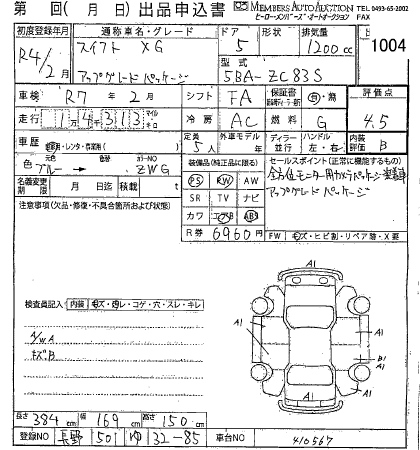 第 回( 月 日)出品申込書 MEMBERS AUTO AUCTION TEL 0493-65-2002
ピーローメンバーズ・オートオークション FAX
初度登録年月 通称車名・グレード ドア 形状 排気量
R4/2月 スイフト XG 5 1200cc 1004
アップグレードパッケージ 型式
5BA-ZC83S
車検 R7年2月 シフト FA 保証書 有・無 評価点
走行 1万4千313 マイル キロ 冷房 AC 燃料 G 4.5
車歴 自家用・レンタ・事業用( ) 定員 外車モデル ディーラー ハンドル 内装
5人 年 並行 左・右 B
色 替色 カラーNO 装備品(純正品に限る) セールスポイント(正常に機能するもの)
ブルー → ZWG PS PW AW 全方位モニター用カメラパッケージ装着車
名義変更期限 月 日迄 積載 t SR TV ナビ アップグレードパッケージ
注意事項(欠品・修復・不具合箇所および状態) カワ エアB ABS
R券 6960円 FW キズ・ヒビ割・リペア跡・X要
検査員記入 内装 キズ・汚レ・コゲ・穴・スレ・キレ
A/W A
キズB
A1
A1
A1
A1
B1
A1
長さ 384 cm 幅 169 cm 高さ 150 cm
登録NO 長野 501 ゆ 32-85 車台NO 410567